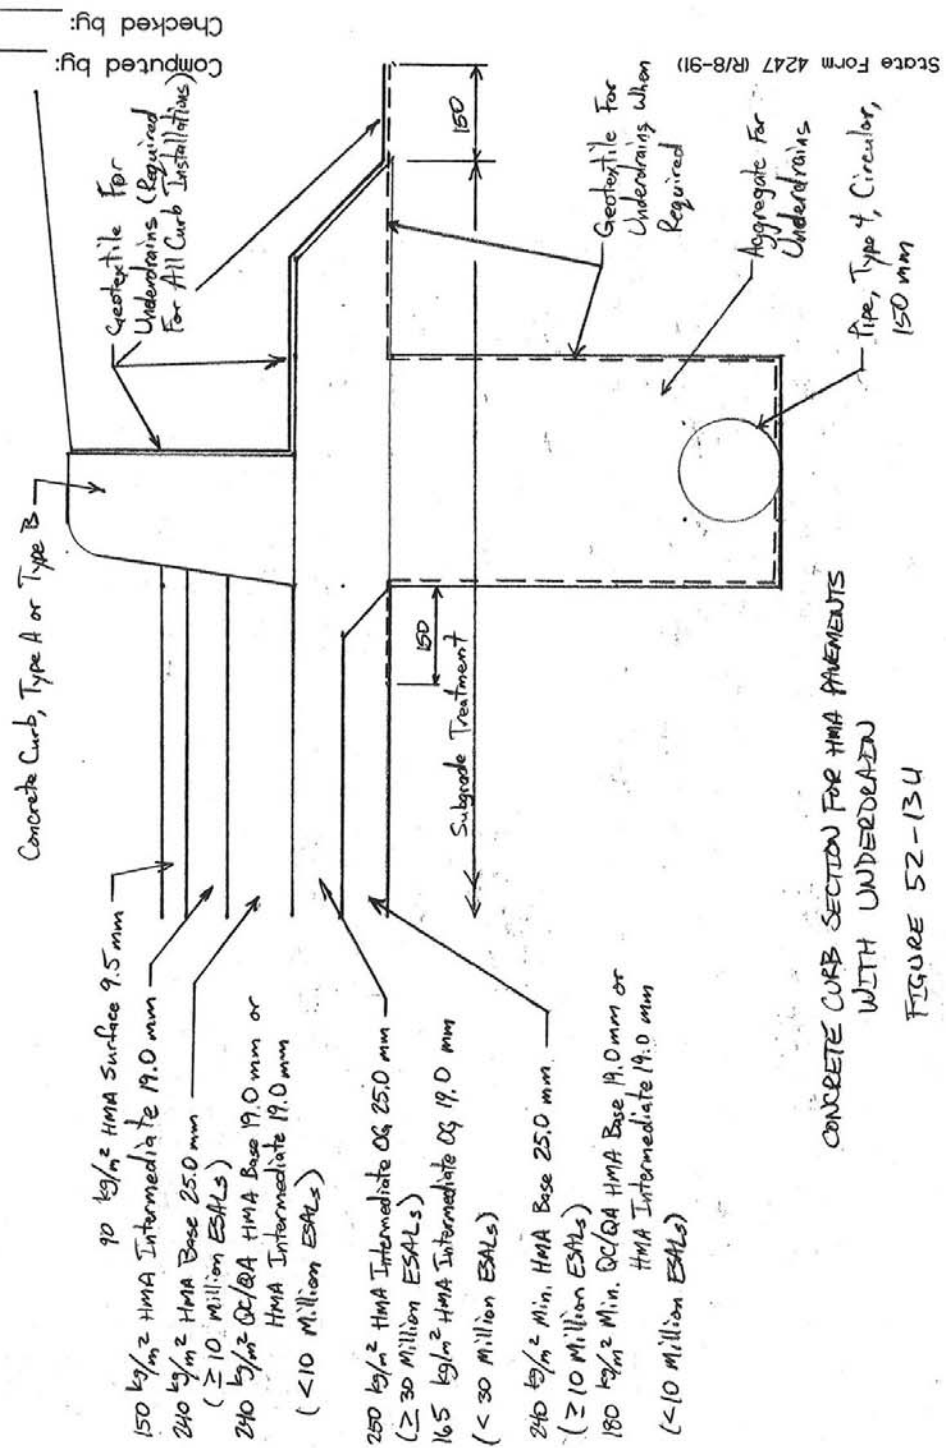 Computed by:
Checked by:
State Form 4247 (R/8-91)
Concrete Curb, Type A or Type B
Geotextile For
Underdrains (Required
For All Curb Installations)
90 kg/m² HMA Surface 9.5 mm
150 kg/m² HMA Intermediate 19.0 mm
240 kg/m² HMA Base 25.0 mm
(≥ 10 million ESALs)
240 kg/m² QC/QA HMA Base 19.0 mm or
HMA Intermediate 19.0 mm
(<10 Million ESALs)
250 kg/m² HMA Intermediate OG 25.0 mm
(≥ 30 Million ESALs)
165 kg/m² HMA Intermediate OG 19.0 mm
(< 30 Million ESALs)
240 kg/m² Min. HMA Base 25.0 mm
(≥ 10 Million ESALs)
180 kg/m² Min. QC/QA HMA Base 19.0 mm or
HMA Intermediate 19.0 mm
(<10 Million ESALs)
150
150
Subgrade Treatment
Geotextile For
Underdrains When
Required
Aggregate For
Underdrains
Pipe, Type 4, Circular,
150 mm
CONCRETE CURB SECTION FOR HMA PAVEMENTS
WITH UNDERDRAIN
FIGURE 52-13U